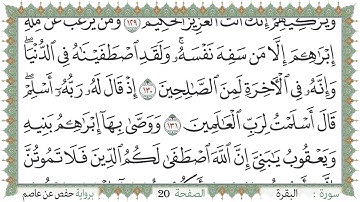 وَيُزَكِّيهِمْ إِنَّكَ أَنتَ ٱلْعَزِيزُ ٱلْحَكِيمُ ١٢٩ وَمَن يَرْغَبُ عَن مِّلَّةِ
إِبْرَٰهِـۧمَ إِلَّا مَن سَفِهَ نَفْسَهُۥۚ وَلَقَدِ ٱصْطَفَيْنَٰهُ فِى ٱلدُّنْيَاۖ
وَإِنَّهُۥ فِى ٱلْـَٔاخِرَةِ لَمِنَ ٱلصَّٰلِحِينَ ١٣٠ إِذْ قَالَ لَهُۥ رَبُّهُۥٓ أَسْلِمْۖ
قَالَ أَسْلَمْتُ لِرَبِّ ٱلْعَٰلَمِينَ ١٣١ وَوَصَّىٰ بِهَآ إِبْرَٰهِـۧمُ بَنِيهِ
وَيَعْقُوبُ يَٰبَنِىَّ إِنَّ ٱللَّهَ ٱصْطَفَىٰ لَكُمُ ٱلدِّينَ فَلَا تَمُوتُنَّ
سورة : البقرة الصفحة 20 برواية حفص عن عاصم